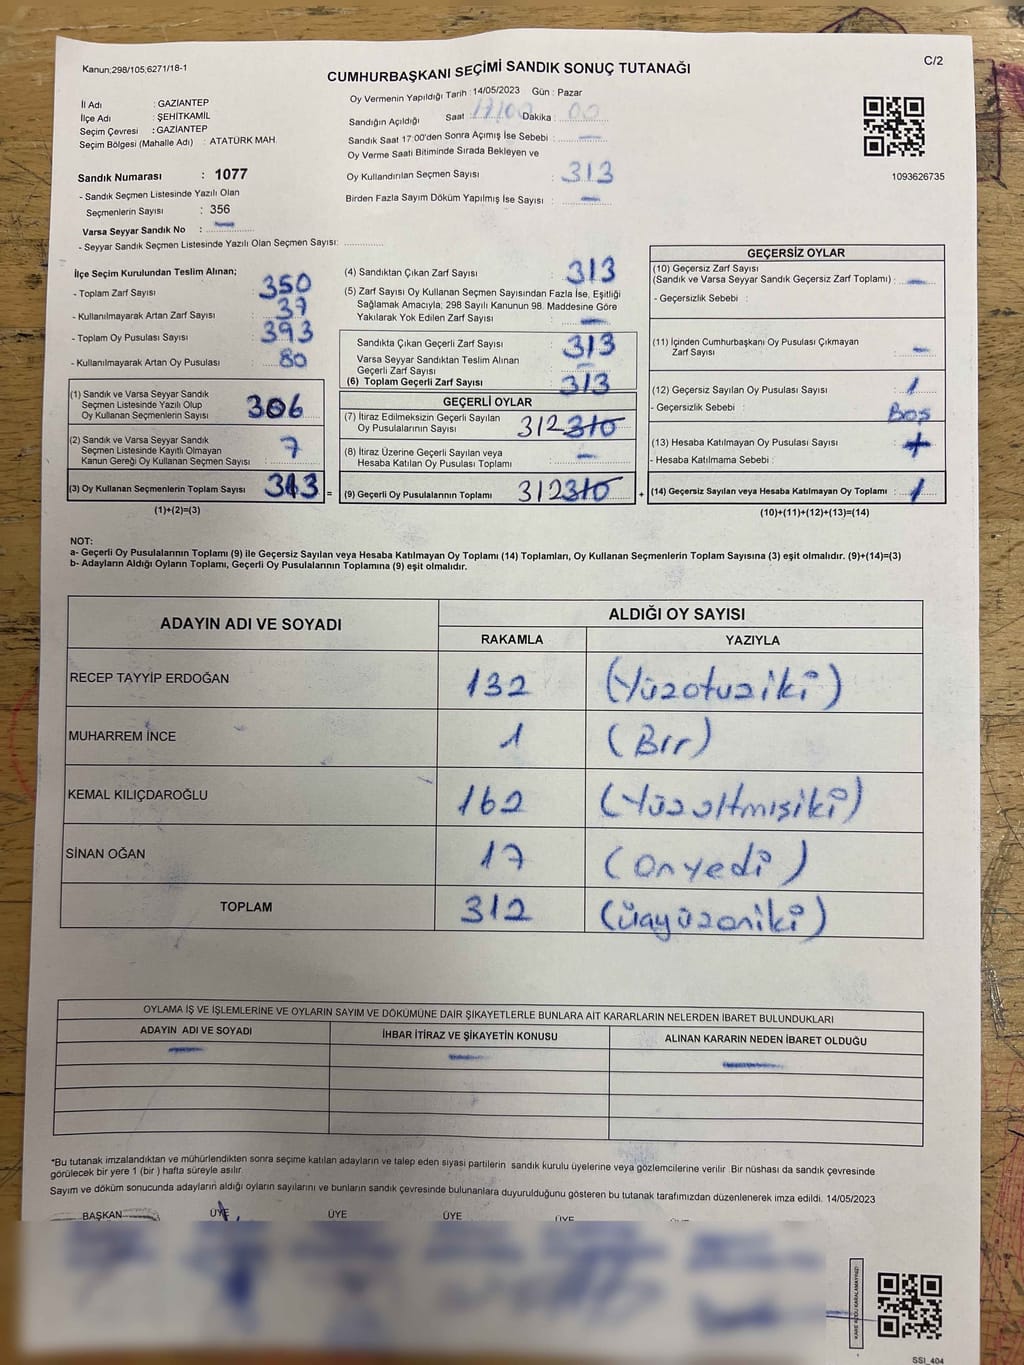 Kanun;298/105;6271/18-1
C/2
CUMHURBAŞKANI SEÇİMİ SANDIK SONUÇ TUTANAĞI
İl Adı : GAZİANTEP
İlçe Adı : ŞEHİTKAMİL
Seçim Çevresi : GAZİANTEP
Seçim Bölgesi (Mahalle Adı) : ATATÜRK MAH.
Oy Vermenin Yapıldığı Tarih : 14/05/2023 Gün : Pazar
Sandığın Açıldığı Saat : 17/00 Dakika : 00
Sandık Saat 17:00'den Sonra Açımış İse Sebebi : —
Oy Verme Saati Bitiminde Sırada Bekleyen ve
Oy Kullandırılan Seçmen Sayısı : 313
Birden Fazla Sayım Döküm Yapılmış İse Sayısı : —
1093626735
Sandık Numarası : 1077
- Sandık Seçmen Listesinde Yazılı Olan
Seçmenlerin Sayısı : 356
Varsa Seyyar Sandık No : —
- Seyyar Sandık Seçmen Listesinde Yazılı Olan Seçmen Sayısı:
İlçe Seçim Kurulundan Teslim Alınan;
- Toplam Zarf Sayısı : 350
- Kullanılmayarak Artan Zarf Sayısı : 37
- Toplam Oy Pusulası Sayısı : 393
- Kullanılmayarak Artan Oy Pusulası : 80
(1) Sandık ve Varsa Seyyar Sandık
Seçmen Listesinde Yazılı Olup
Oy Kullanan Seçmenlerin Sayısı : 306
(2) Sandık ve Varsa Seyyar Sandık
Seçmen Listesinde Kayıtlı Olmayan
Kanun Gereği Oy Kullanan Seçmen Sayısı : 7
(3) Oy Kullanan Seçmenlerin Toplam Sayısı : 313 =
(1)+(2)=(3)
(4) Sandıktan Çıkan Zarf Sayısı : 313
(5) Zarf Sayısı Oy Kullanan Seçmen Sayısından Fazla İse, Eşitliği
Sağlamak Amacıyla; 298 Sayılı Kanunun 98. Maddesine Göre
Yakılarak Yok Edilen Zarf Sayısı : —
Sandıkta Çıkan Geçerli Zarf Sayısı : 313
Varsa Seyyar Sandıktan Teslim Alınan
Geçerli Zarf Sayısı : —
(6) Toplam Geçerli Zarf Sayısı : 313
GEÇERLİ OYLAR
(7) İtiraz Edilmeksizin Geçerli Sayılan
Oy Pusulalarının Sayısı 312 310
(8) İtiraz Üzerine Geçerli Sayılan veya
Hesaba Katılan Oy Pusulası Toplamı : —
(9) Geçerli Oy Pusulalarının Toplamı 312 310 +
GEÇERSİZ OYLAR
(10) Geçersiz Zarf Sayısı
(Sandık ve Varsa Seyyar Sandık Geçersiz Zarf Toplamı) : —
- Geçersizlik Sebebi :
(11) İçinden Cumhurbaşkanı Oy Pusulası Çıkmayan
Zarf Sayısı : —
(12) Geçersiz Sayılan Oy Pusulası Sayısı : 1
- Geçersizlik Sebebi : Boş
(13) Hesaba Katılmayan Oy Pusulası Sayısı
- Hesaba Katılmama Sebebi :
(14) Geçersiz Sayılan veya Hesaba Katılmayan Oy Toplamı : 1
(10)+(11)+(12)+(13)=(14)
NOT:
a- Geçerli Oy Pusulalarının Toplamı (9) ile Geçersiz Sayılan veya Hesaba Katılmayan Oy Toplamı (14) Toplamları, Oy Kullanan Seçmenlerin Toplam Sayısına (3) eşit olmalıdır. (9)+(14)=(3)
b- Adayların Aldığı Oyların Toplamı, Geçerli Oy Pusulalarının Toplamına (9) eşit olmalıdır.
ADAYIN ADI VE SOYADI
ALDIĞI OY SAYISI
RAKAMLA YAZIYLA
RECEP TAYYİP ERDOĞAN 132 (Yüzotuziki)
MUHARREM İNCE 1 (Bir)
KEMAL KILIÇDAROĞLU 162 (Yüzaltmışiki)
SİNAN OĞAN 17 (Onyedi)
TOPLAM 312 (Üçyüzoniki)
OYLAMA İŞ VE İŞLEMLERİNE VE OYLARIN SAYIM VE DÖKÜMÜNE DAİR ŞİKAYETLERLE BUNLARA AİT KARARLARIN NELERDEN İBARET BULUNDUKLARI
ADAYIN ADI VE SOYADI İHBAR İTİRAZ VE ŞİKAYETİN KONUSU ALINAN KARARIN NEDEN İBARET OLDUĞU
— — —
*Bu tutanak imzalandıktan ve mühürlendikten sonra seçime katılan adayların ve talep eden siyasi partilerin sandık kurulu üyelerine veya gözlemcilerine verilir. Bir nüshası da sandık çevresinde
görülecek bir yere 1 (bir) hafta süreyle asılır.
Sayım ve döküm sonucunda adayların aldığı oyların sayılarını ve bunların sandık çevresinde bulunanlara duyurulduğunu gösteren bu tutanak tarafımızdan düzenlenerek imza edildi. 14/05/2023
BAŞKAN ÜYE ÜYE ÜYE ÜYE
KARE KODU KARALAMAYINIZ!
SSI_404